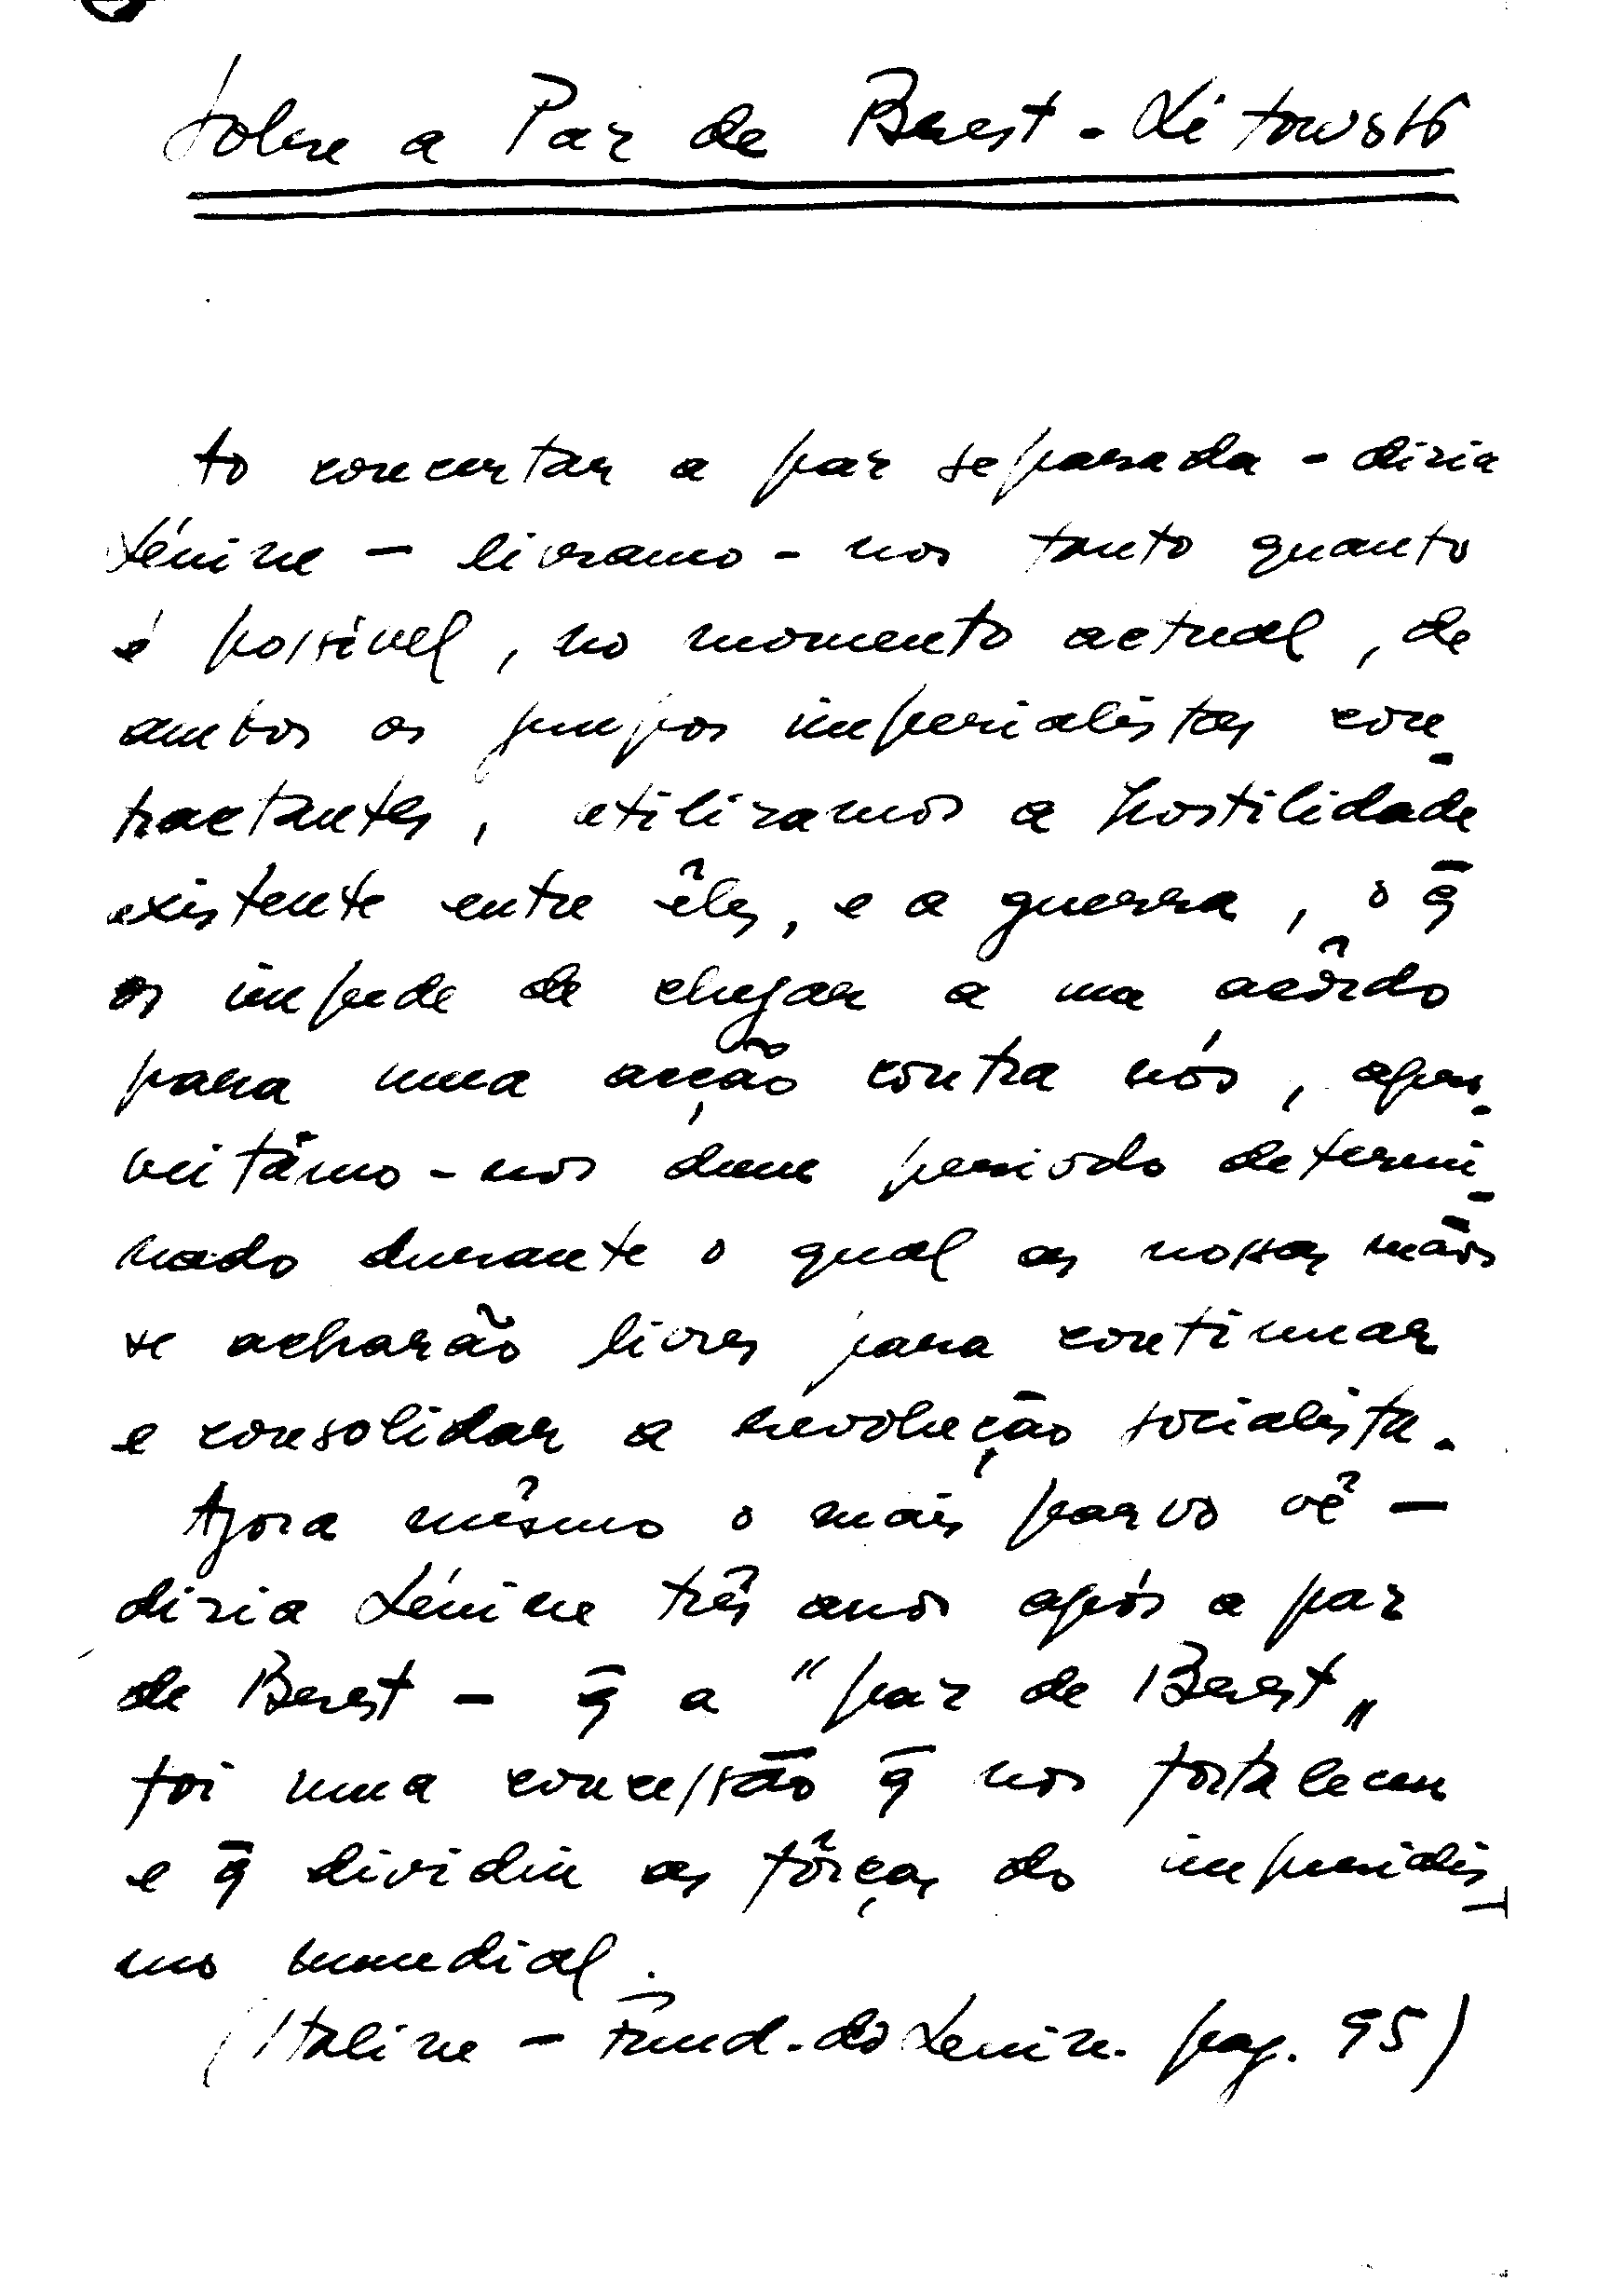 Sobre a Paz de Brest-Litowsk
Ao concertar a paz separada - dizia
Lénine - livramo-nos tanto quanto
é possível, no momento actual, de
ambos os grupos imperialistas con-
tractantes, utilizamos a hostilidade
existente entre êles, e a guerra, o q̄
os impede de chegar a um acôrdo
para uma acção contra nós, apro-
veitâmo-nos dum periodo determi-
nado durante o qual as nossas mãos
se acharão livres para continuar
e consolidar a revolução socialista.
Agora mêsmo o mais parvo vê -
dizia Lénine três anos após a paz
de Brest - q̄ a "paz de Brest"
foi uma concessão q̄ nos fortaleceu
e q̄ dividiu as fôrças do imperialis-
mo mundial.
(Staline - Fund. do Lenin. pag. 95)